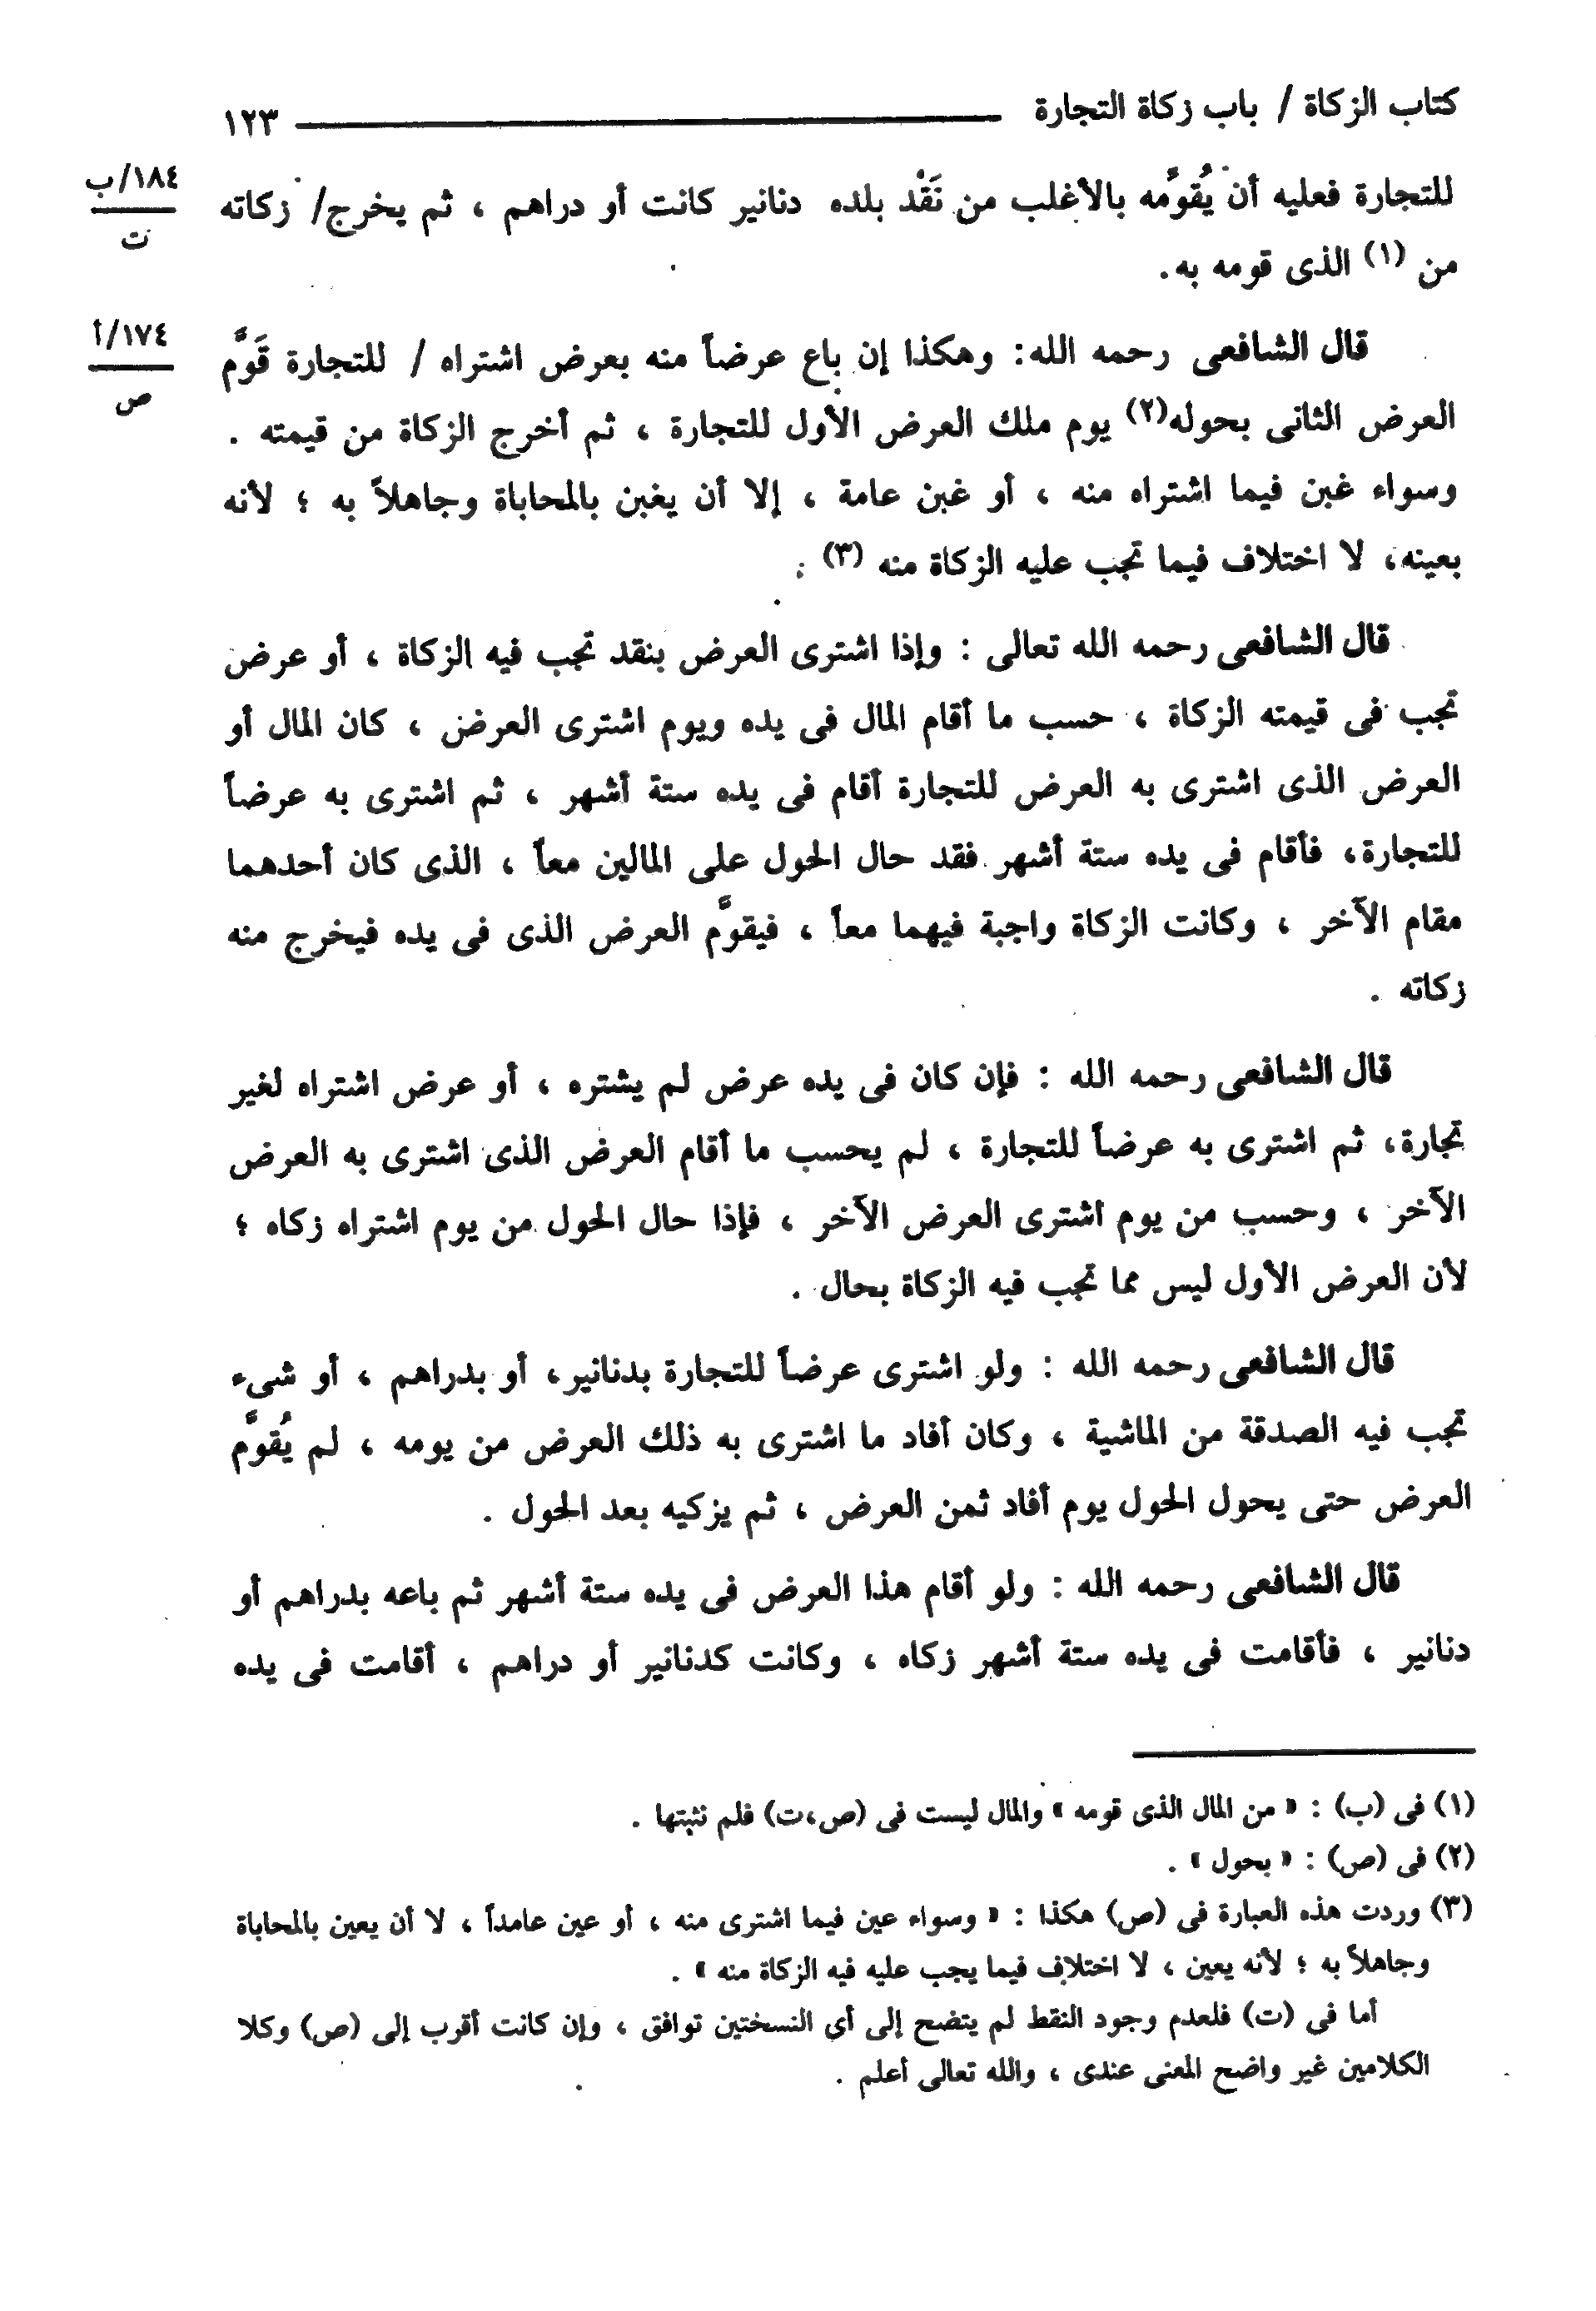 كتاب الزكاة / باب زكاة التجارة ١٢٣
للتجارة فعليه أن يُقوِّمه بالأغلب من نَقْد بلده دنانير كانت أو دراهم ، ثم يخرج/ زكاته
١٨٤/ب
ت
من (١) الذى قومه به.
قال الشافعى رحمه الله: وهكذا إن باع عرضاً منه بعرض اشتراه / للتجارة قَوَّم
١٧٤/أ
ص
العرض الثانى بحوله(٢) يوم ملك العرض الأول للتجارة ، ثم أخرج الزكاة من قيمته .
وسواء غبن فيما اشتراه منه ، أو غبن عامة ، إلا أن يغبن بالمحاباة وجاهلاً به ؛ لأنه
بعينه، لا اختلاف فيما تجب عليه الزكاة منه (٣) .
قال الشافعى رحمه الله تعالى : وإذا اشترى العرض بنقد تجب فيه الزكاة ، أو عرض
تجب فى قيمته الزكاة ، حسب ما أقام المال فى يده ويوم اشترى العرض ، كان المال أو
العرض الذى اشترى به العرض للتجارة أقام فى يده ستة أشهر ، ثم اشترى به عرضاً
للتجارة، فأقام فى يده ستة أشهر فقد حال الحول على المالين معاً ، الذى كان أحدهما
مقام الآخر ، وكانت الزكاة واجبة فيهما معاً ، فيقوَّم العرض الذى فى يده فيخرج منه
زكاته .
قال الشافعى رحمه الله : فإن كان فى يده عرض لم يشتره ، أو عرض اشتراه لغير
تجارة، ثم اشترى به عرضاً للتجارة ، لم يحسب ما أقام العرض الذى اشترى به العرض
الآخر ، وحسب من يوم اشترى العرض الآخر ، فإذا حال الحول من يوم اشتراه زكاه ؛
لأن العرض الأول ليس مما تجب فيه الزكاة بحال .
قال الشافعى رحمه الله : ولو اشترى عرضاً للتجارة بدنانير، أو بدراهم ، أو شىء
تجب فيه الصدقة من الماشية ، وكان أفاد ما اشترى به ذلك العرض من يومه ، لم يُقوَّم
العرض حتى يحول الحول يوم أفاد ثمن العرض ، ثم يزكيه بعد الحول .
قال الشافعى رحمه الله : ولو أقام هذا العرض فى يده ستة أشهر ثم باعه بدراهم أو
دنانير ، فأقامت فى يده ستة أشهر زكاه ، وكانت كدنانير أو دراهم ، أقامت فى يده
(١) فى (ب) : « من المال الذى قومه » والمال ليست فى (ص،ت) فلم نثبتها .
(٢) فى (ص) : « بحول » .
(٣) وردت هذه العبارة فى (ص) هكذا : « وسواء عين فيما اشترى منه ، أو عين عامداً ، لا أن يعين بالمحاباة
وجاهلاً به ؛ لأنه يعين ، لا اختلاف فيما يجب عليه فيه الزكاة منه » .
أما فى (ت) فلعدم وجود النقط لم يتضح إلى أى النسختين توافق ، وإن كانت أقرب إلى (ص) وكلا
الكلامين غير واضح المعنى عندى ، والله تعالى أعلم .